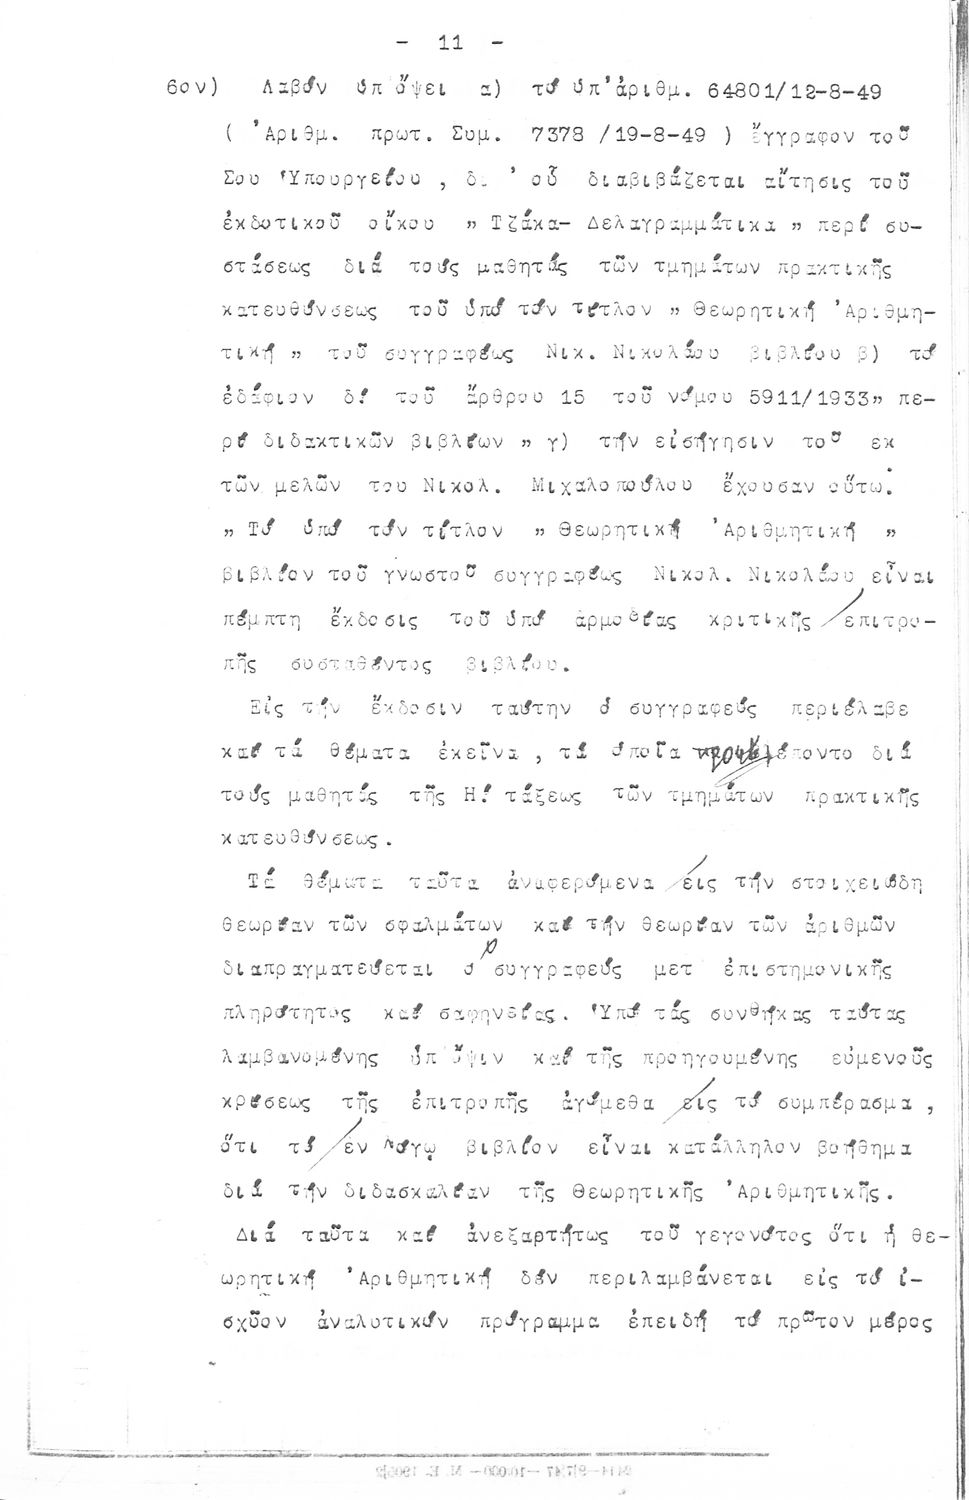 - 11 -
6ον) Λαβόν ὑπ ὄψει α) τό ὑπ'ἀριθμ. 64801/12-8-49
( 'Αριθμ. πρωτ. Συμ. 7378 /19-8-49 ) ἔγγραφον τοῦ
Σου 'Υπουργείου , δι ' οὗ διαβιβάζεται αἴτησις τοῦ
ἐκδοτικοῦ οἴκου " Τζάκα- Δελαγραμμάτικα " περί συ-
στάσεως διά τούς μαθητάς τῶν τμημάτων πρακτικῆς
κατευθύνσεως τοῦ ὑπό τόν τίτλον " Θεωρητική 'Αριθμη-
τική " τοῦ συγγραφέως Νικ. Νικολάου βιβλίου β) τό
ἐδάφιον δ! τοῦ ἄρθρου 15 τοῦ νόμου 5911/1933" πε-
ρί διδακτικῶν βιβλίων " γ) τήν εἰσήγησιν τοῦ εκ
τῶν μελῶν του Νικολ. Μιχαλοπούλου ἔχουσαν οὕτω:
" Τό ὑπό τόν τίτλον " Θεωρητική 'Αριθμητική "
βιβλίον τοῦ γνωστοῦ συγγραφέως Νικολ. Νικολάου εἶναι
πέμπτη ἔκδοσις τοῦ ὑπό ἁρμοδίας κριτικῆς ἐπιτρο-
πῆς συσταθέντος βιβλίου.
Εἰς τήν ἔκδοσιν ταύτην ὁ συγγραφεύς περιέλαβε
καί τά θέματα ἐκεῖνα , τά ὁποῖα προυβλέποντο διά
τούς μαθητάς τῆς Η! τάξεως τῶν τμημάτων πρακτικῆς
κατευθύνσεως.
Τά θέματα ταῦτα ἀναφερόμενα εἰς τήν στοιχειώδη
θεωρίαν τῶν σφαλμάτων καί τήν θεωρίαν τῶν ἀριθμῶν
διαπραγματεύεται ὁ συγγραφεύς μετ ἐπιστημονικῆς
πληρότητος καί σαφηνείας. 'Υπό τάς συνθήκας ταύτας
λαμβανομένης ὑπ ὄψιν καί τῆς προηγουμένης εὐμενοῦς
κρίσεως τῆς ἐπιτροπῆς ἀγόμεθα εἰς τό συμπέρασμα ,
ὅτι τό ἐν λόγῳ βιβλίον εἶναι κατάλληλον βοήθημα
διά τήν διδασκαλίαν τῆς Θεωρητικῆς 'Αριθμητικῆς.
Διά ταῦτα καί ἀνεξαρτήτως τοῦ γεγονότος ὅτι ἡ θε-
ωρητική 'Αριθμητική δέν περιλαμβάνεται εἰς τό ἰ-
σχῦον ἀναλυτικόν πρόγραμμα ἐπειδή τό πρῶτον μέρος